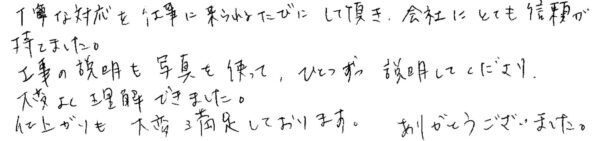 丁寧な対応を仕事に来られるたびにして頂き、会社にとても信頼が
持てました。
工事の説明も写真を使って、ひとつずつ説明してくださり、
大変よく理解できました。
仕上がりも大変満足しております。 ありがとうございました。